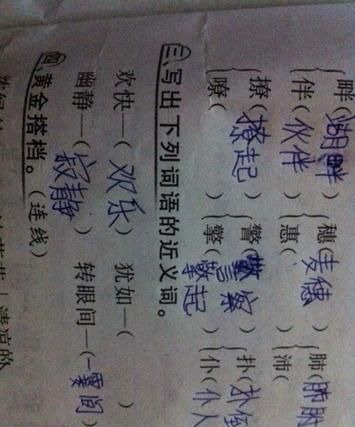 畔(湖畔) 穗(麦穗) 肺(肺
伴(伙伴) 惠( ) 沛(
撩(撩起) 警(警察) 扑(扑
嘹( ) 擎(擎起) 仆(仆人
三、写出下列词语的近义词。
欢快—(欢乐) 犹如—( )
幽静—(寂静) 转眼间—(一霎间)
四、黄金搭档。(连线)